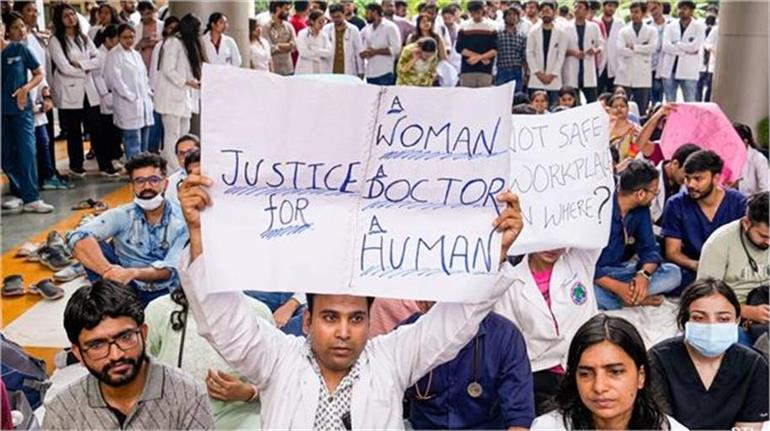 JUSTICE
FOR
A
WOMAN
A
DOCTOR
A
HUMAN
NOT SAFE
WHERE?